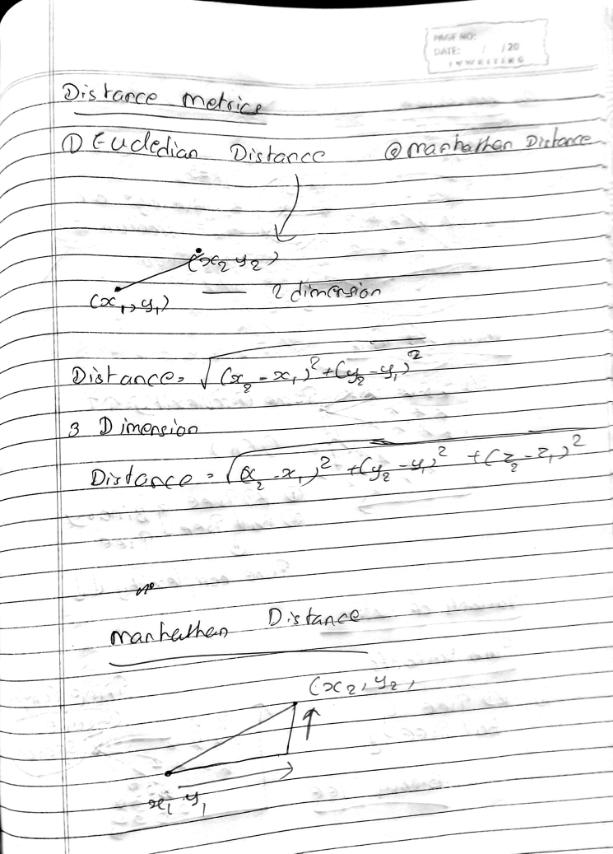 PAGE NO:
DATE: / /20
Distance metrics
① Eucledian Distance @ manhattan Distance
(x₂ y₂)
(x₁, y₁) — 2 dimension
Distance = √(x₂ - x₁)² + (y₂ - y₁)²
3 Dimension
Distance = √(x₂ - x₁)² + (y₂ - y₁)² + (z₂ - z₁)²
manhatten Distance
(x₂, y₂,
x₁ y₁